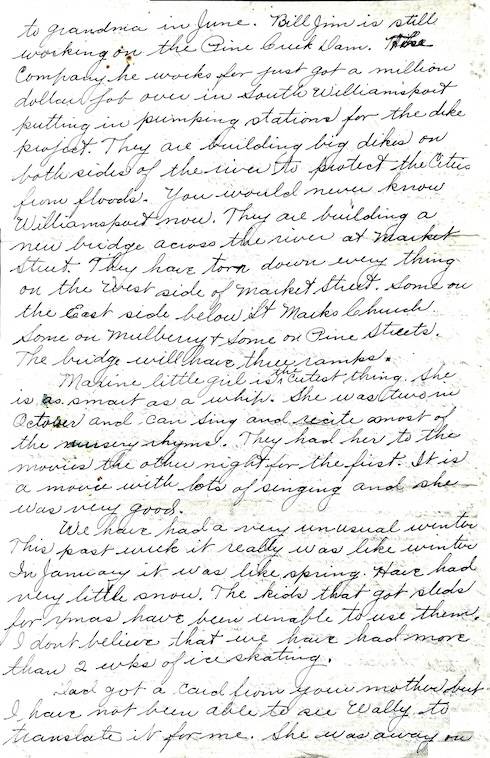 to grandma in June. Bill Jim is still
working on the Pine Creek Dam.
Company he works for just got a million
dollar job over in South Williamsport
putting in pumping stations for the dike
project. They are building big dikes on
both sides of the river to protect the Cities
from floods. You would never know
Williamsport now. They are building a
new bridge across the river at Market
Street. They have torn down every thing
on the West side of Market Street. Some on
the East side below St Marks Church.
Some on Mulberry & Some on Pine Streets.
The bridge will have three ramps.
Maxine little girl is the cutest thing. She
is as smart as a whip. She was two in
October and can sing and recite most of
the nursery rhyms. They had her to the
movies the other night for the first. It is
a movie with lots of singing and she
was very good.
We have had a very unusual winter
This past week it really was like winter
In January it was like spring. Have had
very little snow. The kids that got sleds
for xmas have been unable to use them.
I dont believe that we have had more
than 2 wks of ice skating.
Dad got a card from your mother but
I have not been able to see Wally to
translate it for me. She was away on